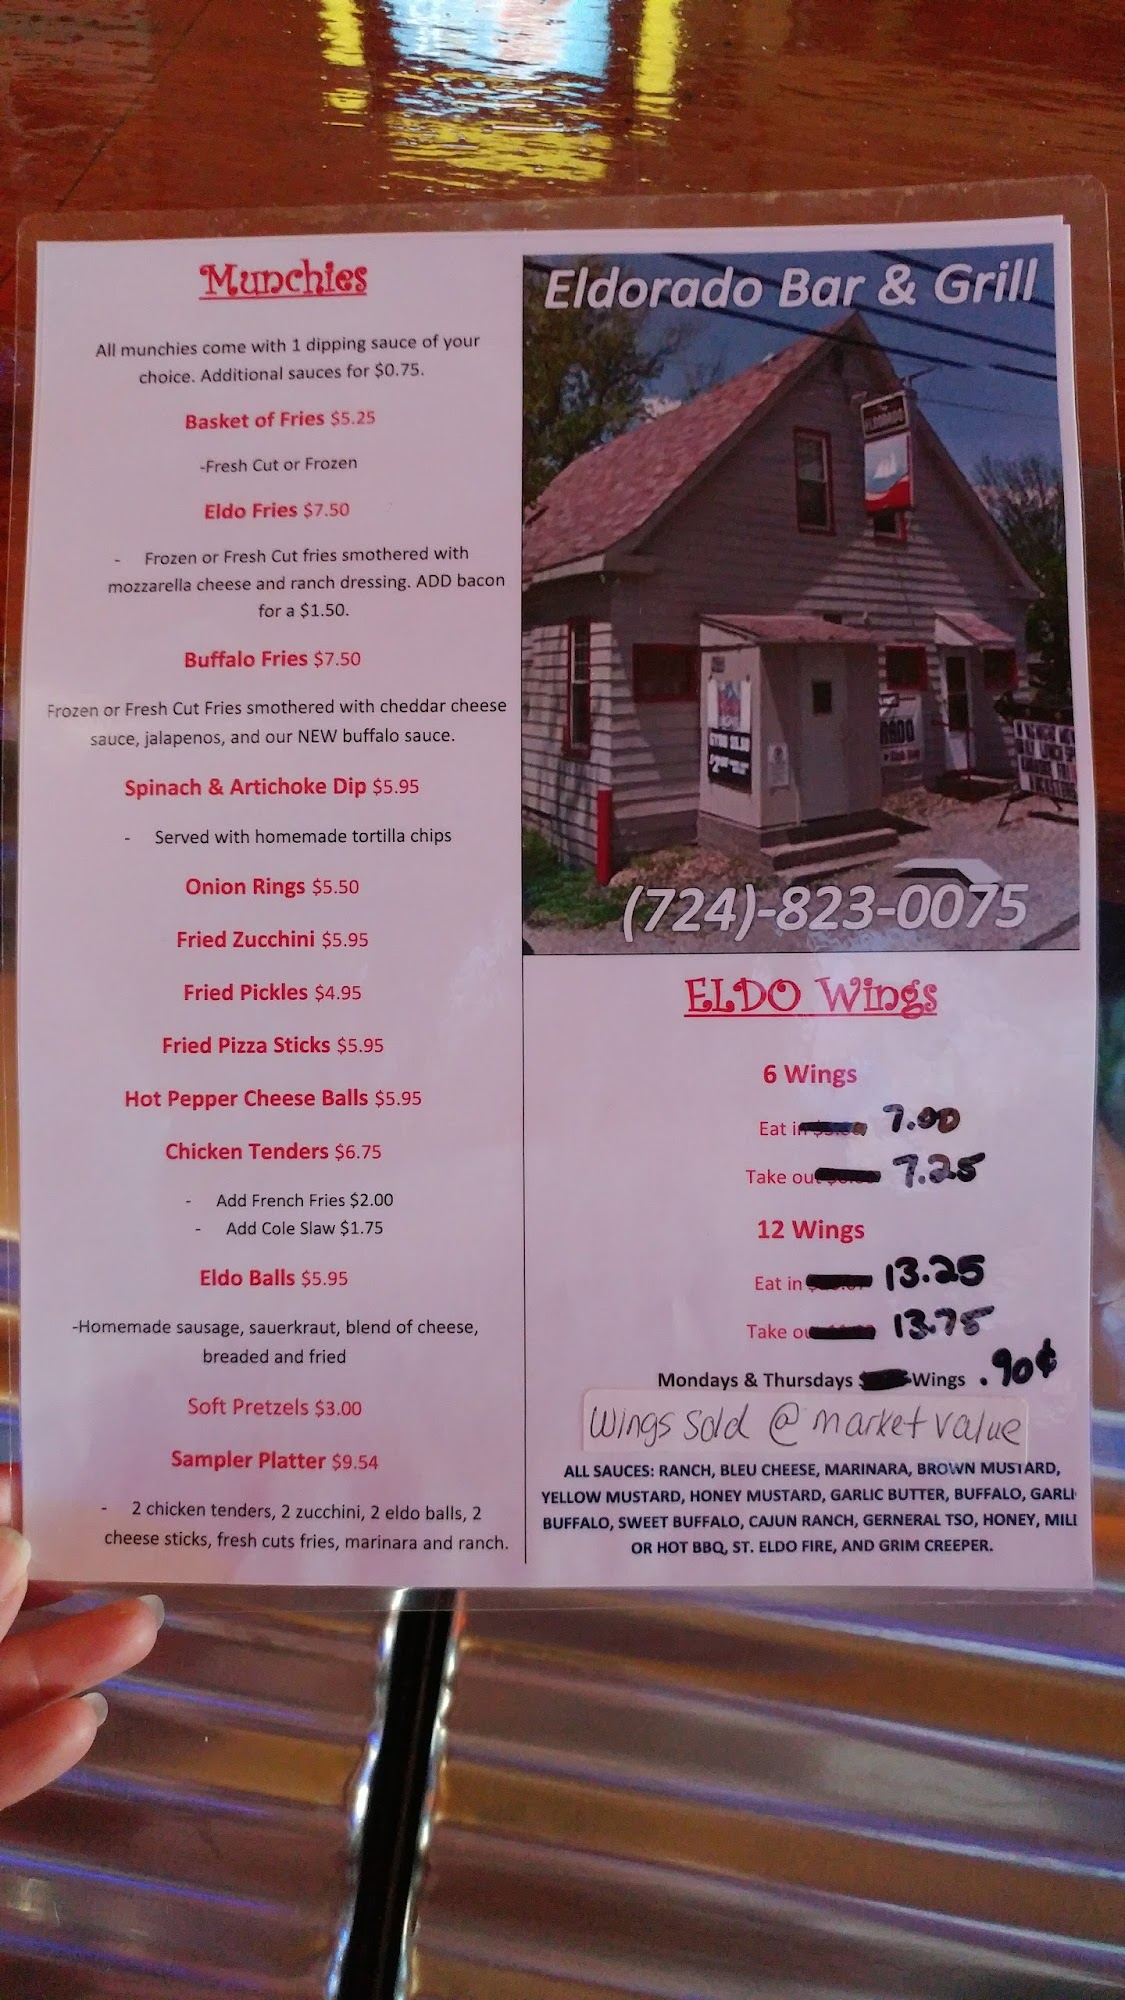 Munchies
All munchies come with 1 dipping sauce of your
choice. Additional sauces for $0.75.
Basket of Fries $5.25
-Fresh Cut or Frozen
Eldo Fries $7.50
- Frozen or Fresh Cut fries smothered with
mozzarella cheese and ranch dressing. ADD bacon
for a $1.50.
Buffalo Fries $7.50
Frozen or Fresh Cut Fries smothered with cheddar cheese
sauce, jalapenos, and our NEW buffalo sauce.
Spinach & Artichoke Dip $5.95
- Served with homemade tortilla chips
Onion Rings $5.50
Fried Zucchini $5.95
Fried Pickles $4.95
Fried Pizza Sticks $5.95
Hot Pepper Cheese Balls $5.95
Chicken Tenders $6.75
- Add French Fries $2.00
- Add Cole Slaw $1.75
Eldo Balls $5.95
-Homemade sausage, sauerkraut, blend of cheese,
breaded and fried
Soft Pretzels $3.00
Sampler Platter $9.54
- 2 chicken tenders, 2 zucchini, 2 eldo balls, 2
cheese sticks, fresh cuts fries, marinara and ranch.
Eldorado Bar & Grill
(724)-823-0075
ELDO Wings
6 Wings
Eat in 7.00
Take out 7.25
12 Wings
Eat in 13.25
Take ou 13.75
Mondays & Thursdays Wings .90¢
Wings Sold @ market value
ALL SAUCES: RANCH, BLEU CHEESE, MARINARA, BROWN MUSTARD,
YELLOW MUSTARD, HONEY MUSTARD, GARLIC BUTTER, BUFFALO, GARLI
BUFFALO, SWEET BUFFALO, CAJUN RANCH, GERNERAL TSO, HONEY, MIL
OR HOT BBQ, ST. ELDO FIRE, AND GRIM CREEPER.